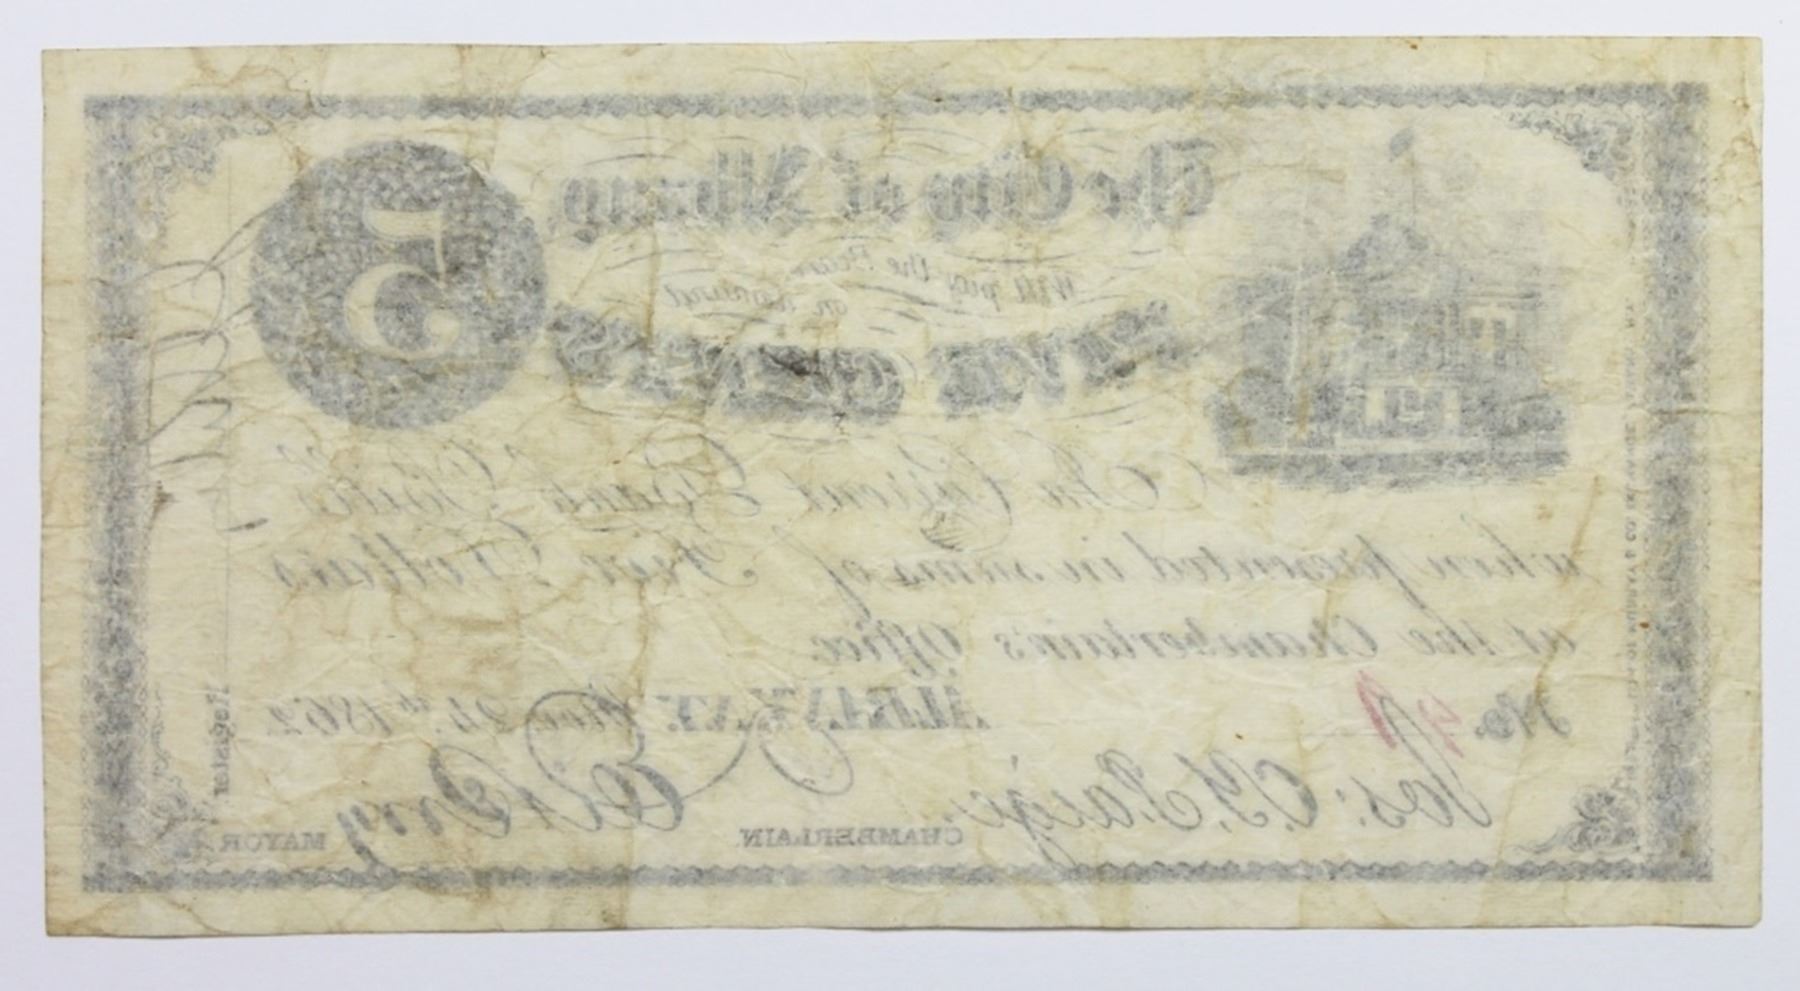 The City of Albany,
Will pay the Bearer
on demand
FIVE CENTS
5
In Current Bank Notes
when presented in sums of Five Dollars
at the Chamberlain's Office.
No.
ALBANY, Nov. 24th 1862.
Jos: C. Y. Paige,
CHAMBERLAIN.
MAYOR
Register